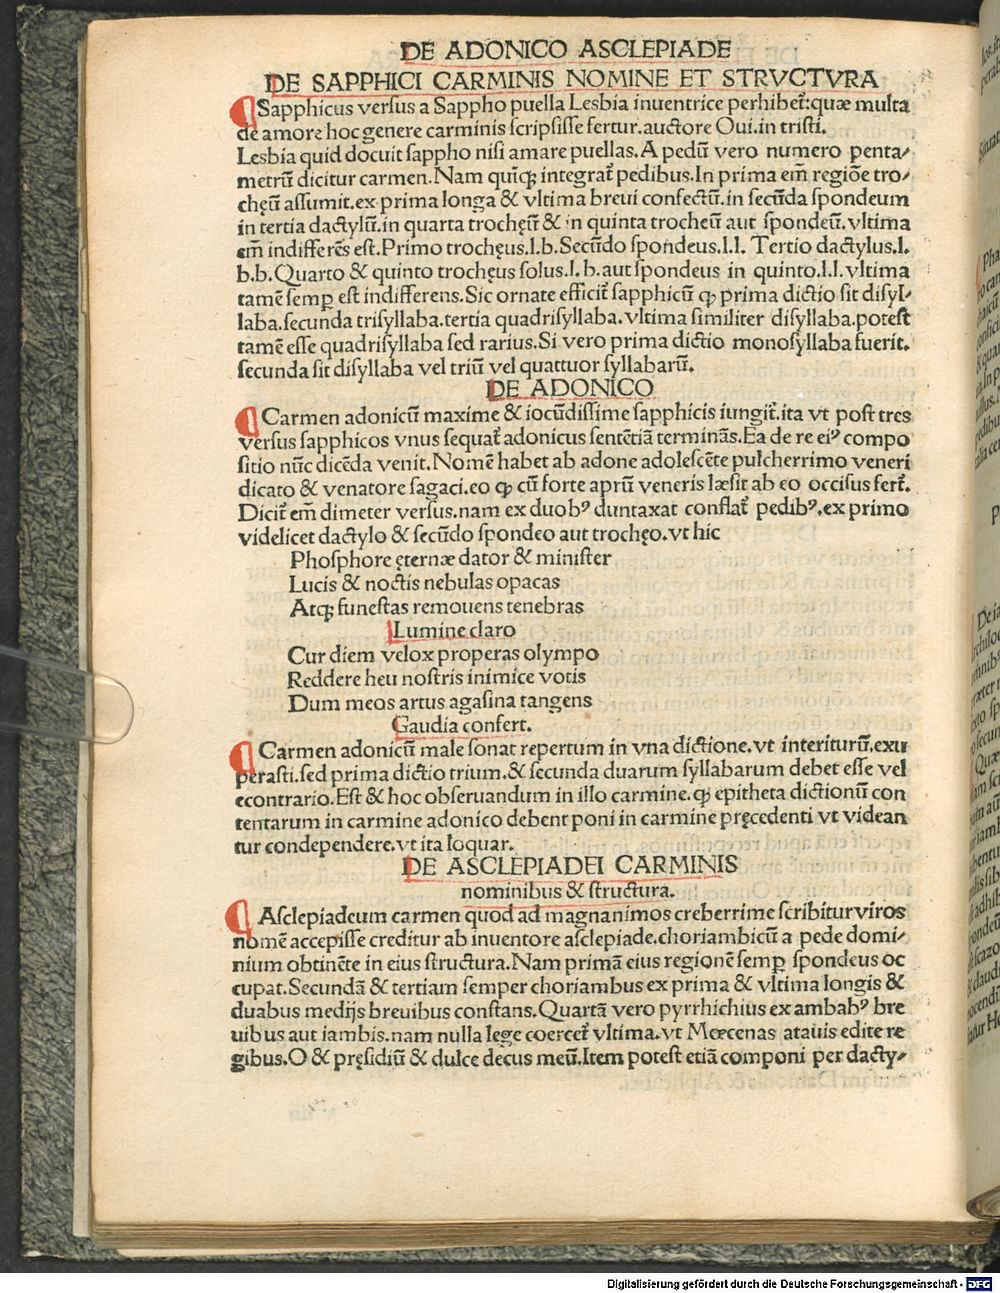 DE ADONICO ASCLEPIADE
DE SAPPHICI CARMINIS NOMINE ET STRVCTVRA
¶ Sapphicus versus a Sappho puella Lesbia inuentrice perhibet᷑:quæ multa
de amore hoc genere carminis scripsisse fertur.auctore Oui.in tristi.
Lesbia quid docuit sappho nisi amare puellas.A pedū vero numero penta⸗
metrū dicitur carmen.Nam quiqꝫ integrat᷑ pedibus.In prima em̄ regiōe tro⸗
chęū assumit.ex prima longa & vltima breui confectū.in secūda spondeum
in tertia dactylū.in quarta trochęū & in quinta trocheū aut spondeū.vltima
em̄ indifferēs est.Primo trochęus.l.b.Secūdo spondeus.l.l. Tertio dactylus.l.
b.b.Quarto & quinto trochęus solus.l.b.aut spondeus in quinto.l.l.vltima
tamē semꝑ est indifferens.Sic ornate efficit᷑ sapphicū ꝙ prima dictio sit disyl⸗
laba.secunda trisyllaba.tertia quadrisyllaba.vltima similiter disyllaba.potest
tamē esse quadrisyllaba sed rarius.Si vero prima dictio monosyllaba fuerit.
secunda sit disyllaba vel triū vel quattuor syllabarū.
DE ADONICO
¶ Carmen adonicū maxime & iocūdissime sapphicis iungit᷑.ita vt post tres
versus sapphicos vnus sequat᷑ adonicus sentētiā terminās.Ea de re eiꝰ compo
sitio nūc dicēda venit.Nomē habet ab adone adolescēte pulcherrimo veneri
dicato & venatore sagaci.eo ꝙ cū forte aprū veneris læsit ab eo occisus fert᷑.
Dicit᷑ em̄ dimeter versus.nam ex duobꝰ duntaxat conflat᷑ pedibꝰ.ex primo
videlicet dactylo & secūdo spondeo aut trochęo.vt hic
Phosphore ęternæ dator & minister
Lucis & noctis nebulas opacas
Atqꝫ funestas remouens tenebras
Lumine claro
Cur diem velox properas olympo
Reddere heu nostris inimice votis
Dum meos artus agasina tangens
Gaudia confert.
¶ Carmen adonicū male sonat repertum in vna dictione.vt interiturū.exu
perasti.sed prima dictio trium.& secunda duarum syllabarum debet esse vel
econtrario.Est & hoc obseruandum in illo carmine.ꝙ epitheta dictionū con
tentarum in carmine adonico debent poni in carmine pręcedenti vt videan
tur condependere.vt ita loquar.
DE ASCLEPIADEI CARMINIS
nominibus & structura.
¶ Asclepiadeum carmen quod ad magnanimos creberrime scribitur viros
nomē accepisse creditur ab inuentore asclepiade.choriambicū a pede domi⸗
nium obtinēte in eius structura.Nam primā eius regionē semꝑ spondeus oc
cupat.Secundā & tertiam semper choriambus ex prima & vltima longis &
duabus medijs breuibus constans.Quartā vero pyrrhichius ex ambabꝰ bre
uibus aut iambis.nam nulla lege coercet᷑ vltima.vt Mœcenas atauis edite re
gibus.O & pręsidiū & dulce decus meū.Item potest etiā componi per dacty⸗
Digitalisierung gefördert durch die Deutsche Forschungsgemeinschaft - DFG